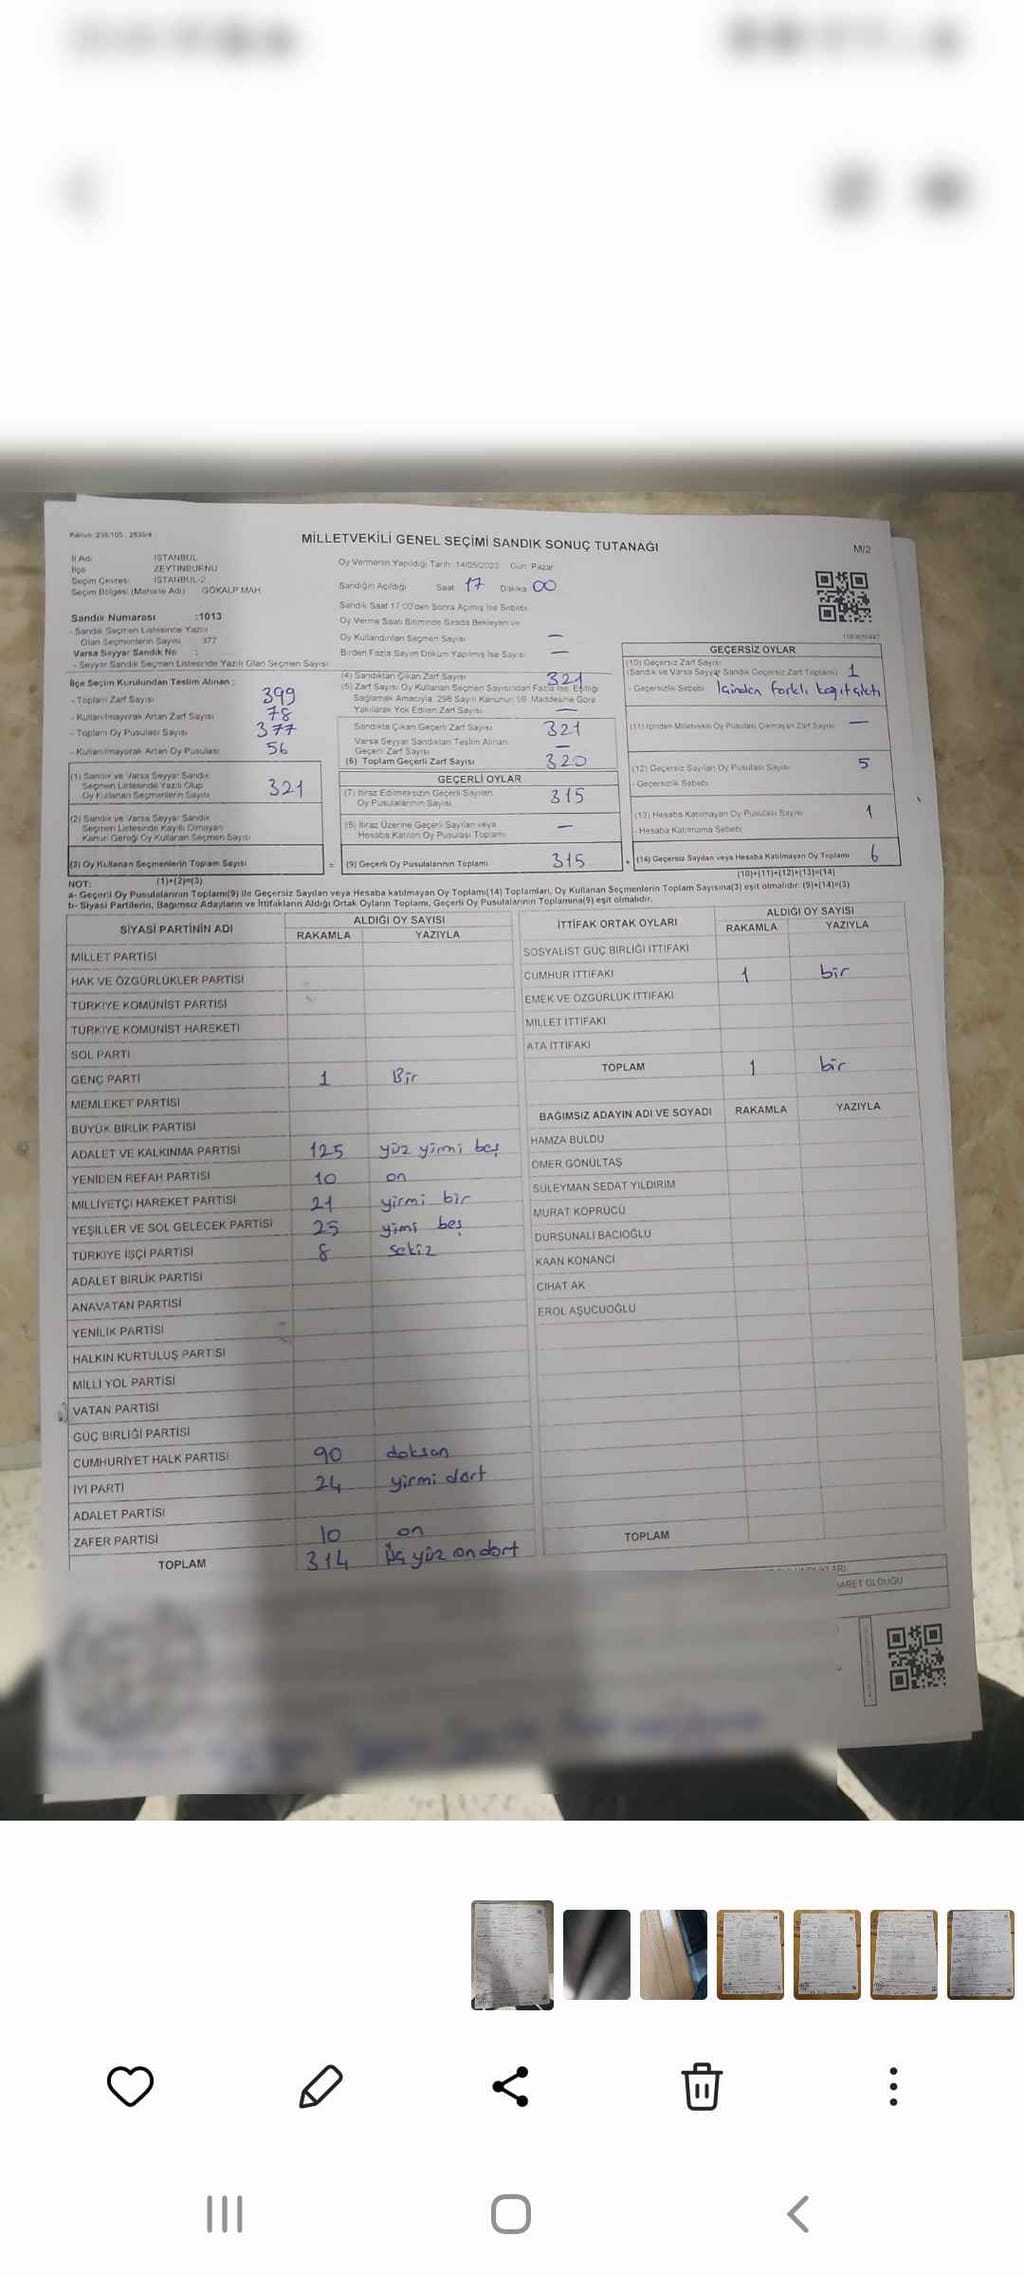 Kanun: 298/105 , 2839/4
MİLLETVEKİLİ GENEL SEÇİMİ SANDIK SONUÇ TUTANAĞI
M/2
İl Adı İSTANBUL
İlçe ZEYTİNBURNU
Seçim Çevresi İSTANBUL-2
Seçim Bölgesi (Mahalle Adı) GÖKALP MAH.
Oy Vermenin Yapıldığı Tarih: 14/05/2023 Gün: Pazar
Sandığın Açıldığı Saat 17 Dakika 00
Sandık Saat 17:00'den Sonra Açılmış İse Sebebi
Oy Verme Saati Bitiminde Sırada Bekleyen ve
Oy Kullandırılan Seçmen Sayısı —
Birden Fazla Sayım Döküm Yapılmış İse Sayısı —
Sandık Numarası :1013
- Sandık Seçmen Listesinde Yazılı
Olan Seçmenlerin Sayısı 377
Varsa Seyyar Sandık No :
- Seyyar Sandık Seçmen Listesinde Yazılı Olan Seçmen Sayısı
İlçe Seçim Kurulundan Teslim Alınan :
- Toplam Zarf Sayısı 399
- Kullanılmayarak Artan Zarf Sayısı 78
- Toplam Oy Pusulası Sayısı 377
- Kullanılmayarak Artan Oy Pusulası 56
(1) Sandık ve Varsa Seyyar Sandık
Seçmen Listesinde Yazılı Olup
Oy Kullanan Seçmenlerin Sayısı 321
(2) Sandık ve Varsa Seyyar Sandık
Seçmen Listesinde Kayıtlı Olmayan
Kanun Gereği Oy Kullanan Seçmen Sayısı
(3) Oy Kullanan Seçmenlerin Toplam Sayısı
(1)+(2)=(3)
(4) Sandıktan Çıkan Zarf Sayısı 321
(5) Zarf Sayısı Oy Kullanan Seçmen Sayısından Fazla İse, Eşitliği
Sağlamak Amacıyla, 298 Sayılı Kanunun 98. Maddesine Göre
Yakılarak Yok Edilen Zarf Sayısı —
Sandıkta Çıkan Geçerli Zarf Sayısı 321
Varsa Seyyar Sandıktan Teslim Alınan
Geçerli Zarf Sayısı —
(6) Toplam Geçerli Zarf Sayısı 320
GEÇERLİ OYLAR
(7) İtiraz Edilmeksizin Geçerli Sayılan
Oy Pusulalarının Sayısı 315
(8) İtiraz Üzerine Geçerli Sayılan veya
Hesaba Katılan Oy Pusulası Toplamı —
= (9) Geçerli Oy Pusulalarının Toplamı 315
GEÇERSİZ OYLAR
(10) Geçersiz Zarf Sayısı
(Sandık ve Varsa Seyyar Sandık Geçersiz Zarf Toplamı) 1
- Geçersizlik Sebebi İçinden farklı kağıt çıktı
(11) İçinden Milletvekili Oy Pusulası Çıkmayan Zarf Sayısı —
(12) Geçersiz Sayılan Oy Pusulası Sayısı 5
- Geçersizlik Sebebi
(13) Hesaba Katılmayan Oy Pusulası Sayısı 1
- Hesaba Katılmama Sebebi
+ (14) Geçersiz Sayılan veya Hesaba Katılmayan Oy Toplamı 6
(10)+(11)+(12)+(13)=(14)
NOT:
a- Geçerli Oy Pusulalarının Toplamı(9) ile Geçersiz Sayılan veya Hesaba katılmayan Oy Toplamı(14) Toplamları, Oy Kullanan Seçmenlerin Toplam Sayısına(3) eşit olmalıdır. (9)+(14)=(3)
b- Siyasi Partilerin, Bağımsız Adayların ve İttifakların Aldığı Ortak Oyların Toplamı, Geçerli Oy Pusulalarının Toplamına(9) eşit olmalıdır.
SİYASİ PARTİNİN ADI ALDIĞI OY SAYISI
RAKAMLA YAZIYLA
MİLLET PARTİSİ
HAK VE ÖZGÜRLÜKLER PARTİSİ
TÜRKİYE KOMÜNİST PARTİSİ
TÜRKİYE KOMÜNİST HAREKETİ
SOL PARTİ
GENÇ PARTİ 1 Bir
MEMLEKET PARTİSİ
BÜYÜK BİRLİK PARTİSİ
ADALET VE KALKINMA PARTİSİ 125 yüz yirmi beş
YENİDEN REFAH PARTİSİ 10 on
MİLLİYETÇİ HAREKET PARTİSİ 21 yirmi bir
YEŞİLLER VE SOL GELECEK PARTİSİ 25 yimi beş
TÜRKİYE İŞÇİ PARTİSİ 8 sekiz
ADALET BİRLİK PARTİSİ
ANAVATAN PARTİSİ
YENİLİK PARTİSİ
HALKIN KURTULUŞ PARTİSİ
MİLLİ YOL PARTİSİ
VATAN PARTİSİ
GÜÇ BİRLİĞİ PARTİSİ
CUMHURİYET HALK PARTİSİ 90 doksan
İYİ PARTİ 24 yirmi dört
ADALET PARTİSİ
ZAFER PARTİSİ 10 on
TOPLAM 314 üç yüz on dört
İTTİFAK ORTAK OYLARI ALDIĞI OY SAYISI
RAKAMLA YAZIYLA
SOSYALİST GÜÇ BİRLİĞİ İTTİFAKI
CUMHUR İTTİFAKI 1 bir
EMEK VE ÖZGÜRLÜK İTTİFAKI
MİLLET İTTİFAKI
ATA İTTİFAKI
TOPLAM 1 bir
BAĞIMSIZ ADAYIN ADI VE SOYADI RAKAMLA YAZIYLA
HAMZA BULDU
ÖMER GÖNÜLTAŞ
SÜLEYMAN SEDAT YILDIRIM
MURAT KÖPRÜCÜ
DURSUNALİ BACIOĞLU
KAAN KONANCI
CİHAT AK
EROL AŞUCUOĞLU
TOPLAM